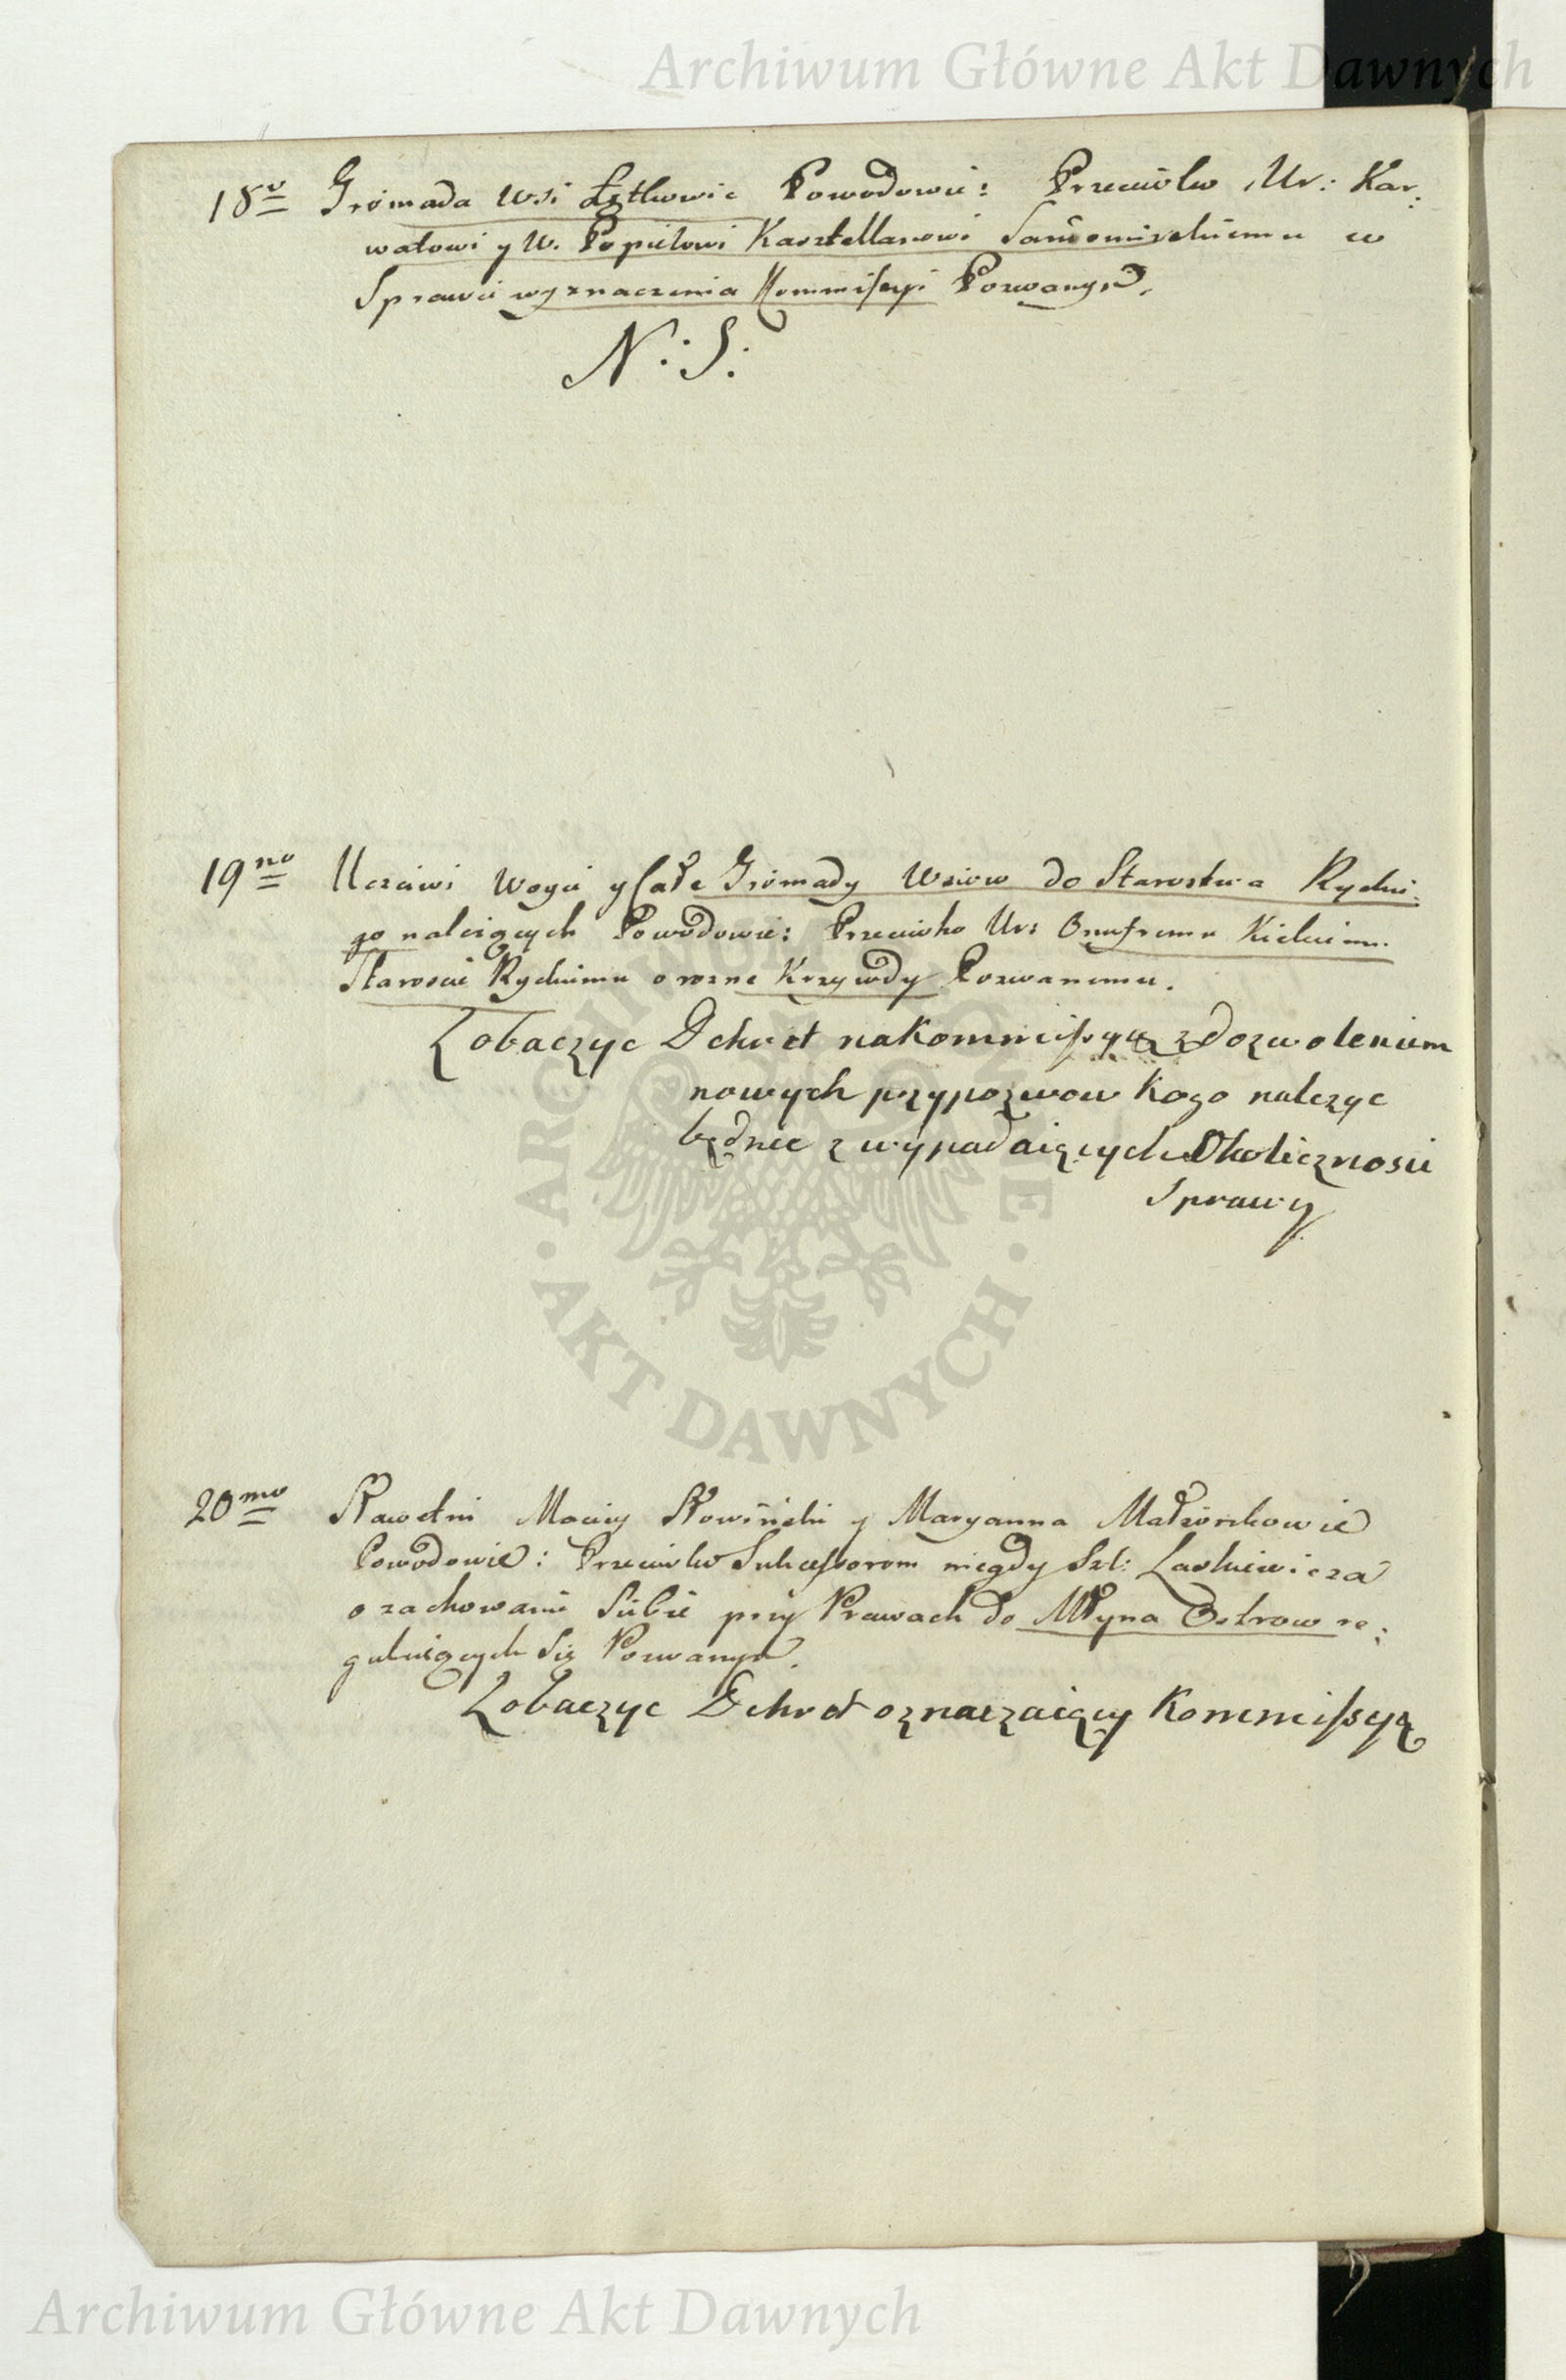 Archiwum Główne Akt Dawnych
18º Gromada Wsi Łętkowic Powodowie: Przeciwko Ur: Kar:
watowi y W. Popielowi Kasztellanowi Sandomirskiemu w
Sprawie wyznaczenia Kommissyi Pozwanych.
N: S:
19no Uczciwi Woyci y Całe Gromady Wsiow do Starostwa Ryckie:
go należących Powodowie: Przeciwko Ur: Onufremu Kickiemu
Staroscie Ryckiemu o rozne Krzywdy Pozwanemu.
Zobaczyc Dekret na Kommissyą z dozwoleniem
nowych przypozwow Kogo nalezyc
będzie z wypadaiących Okolicznosci
Sprawy
20mo Sławetni Maciey Słowiński y Maryanna Małżonkowie
Powodowie: Przeciwko Sukcessorom niegdy Szl: Laskiewicza
o zachowanie Siebie przy Prawach do Młyna Ostrow re:
guluiących Się Pozwanych.
Zobaczyc Dekret oznaczaiący Kommissyą
ARCHIWUM GŁÓWNE • AKT DAWNYCH •
Archiwum Główne Akt Dawnych